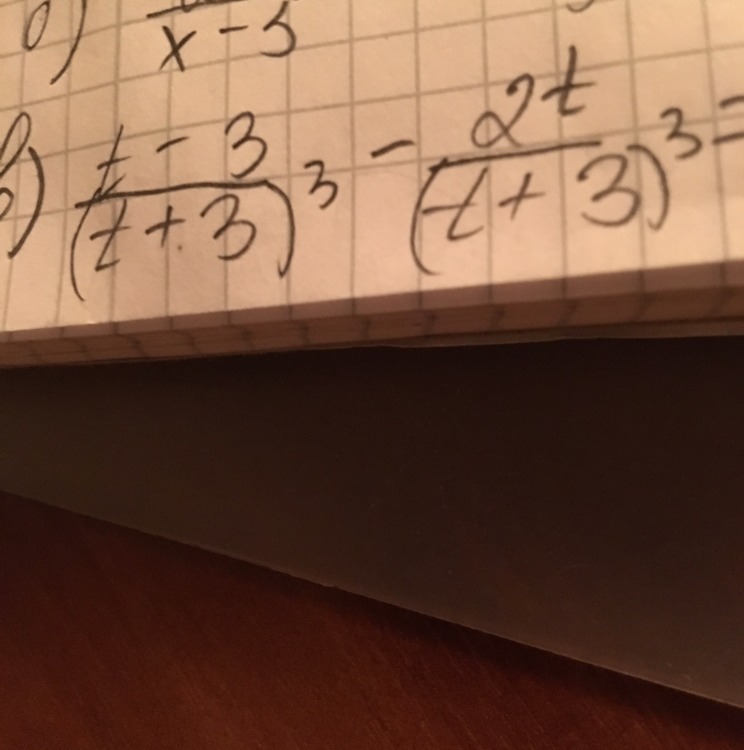 x - 3
в) t - 3 / (t + 3)³ - 2t / (t + 3)³ =